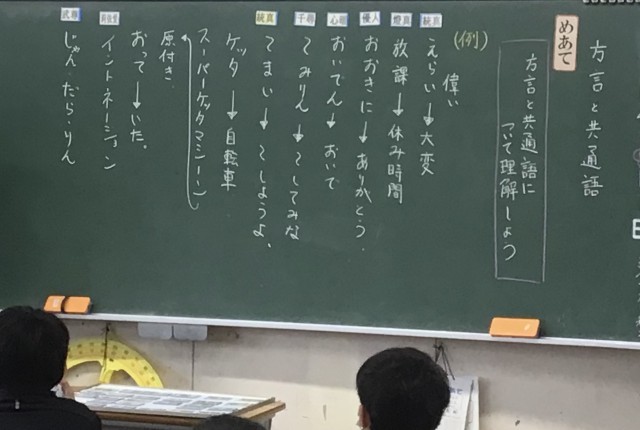 方言と共通語
めあて
方言と共通語に
ついて理解しよう
(例)
えらい→大変
偉い
放課→休み時間
おおきに→ありがとう。
おいでん→おいで
〜てみりん→〜してみな
〜てまい→〜しようよ。
ケッタ→自転車
スーパーケッタマシーン
原付き
おって→いた。
イントネーション
じゃん・だら・りん
統真
優人
心暖
千尋
統真
武尊